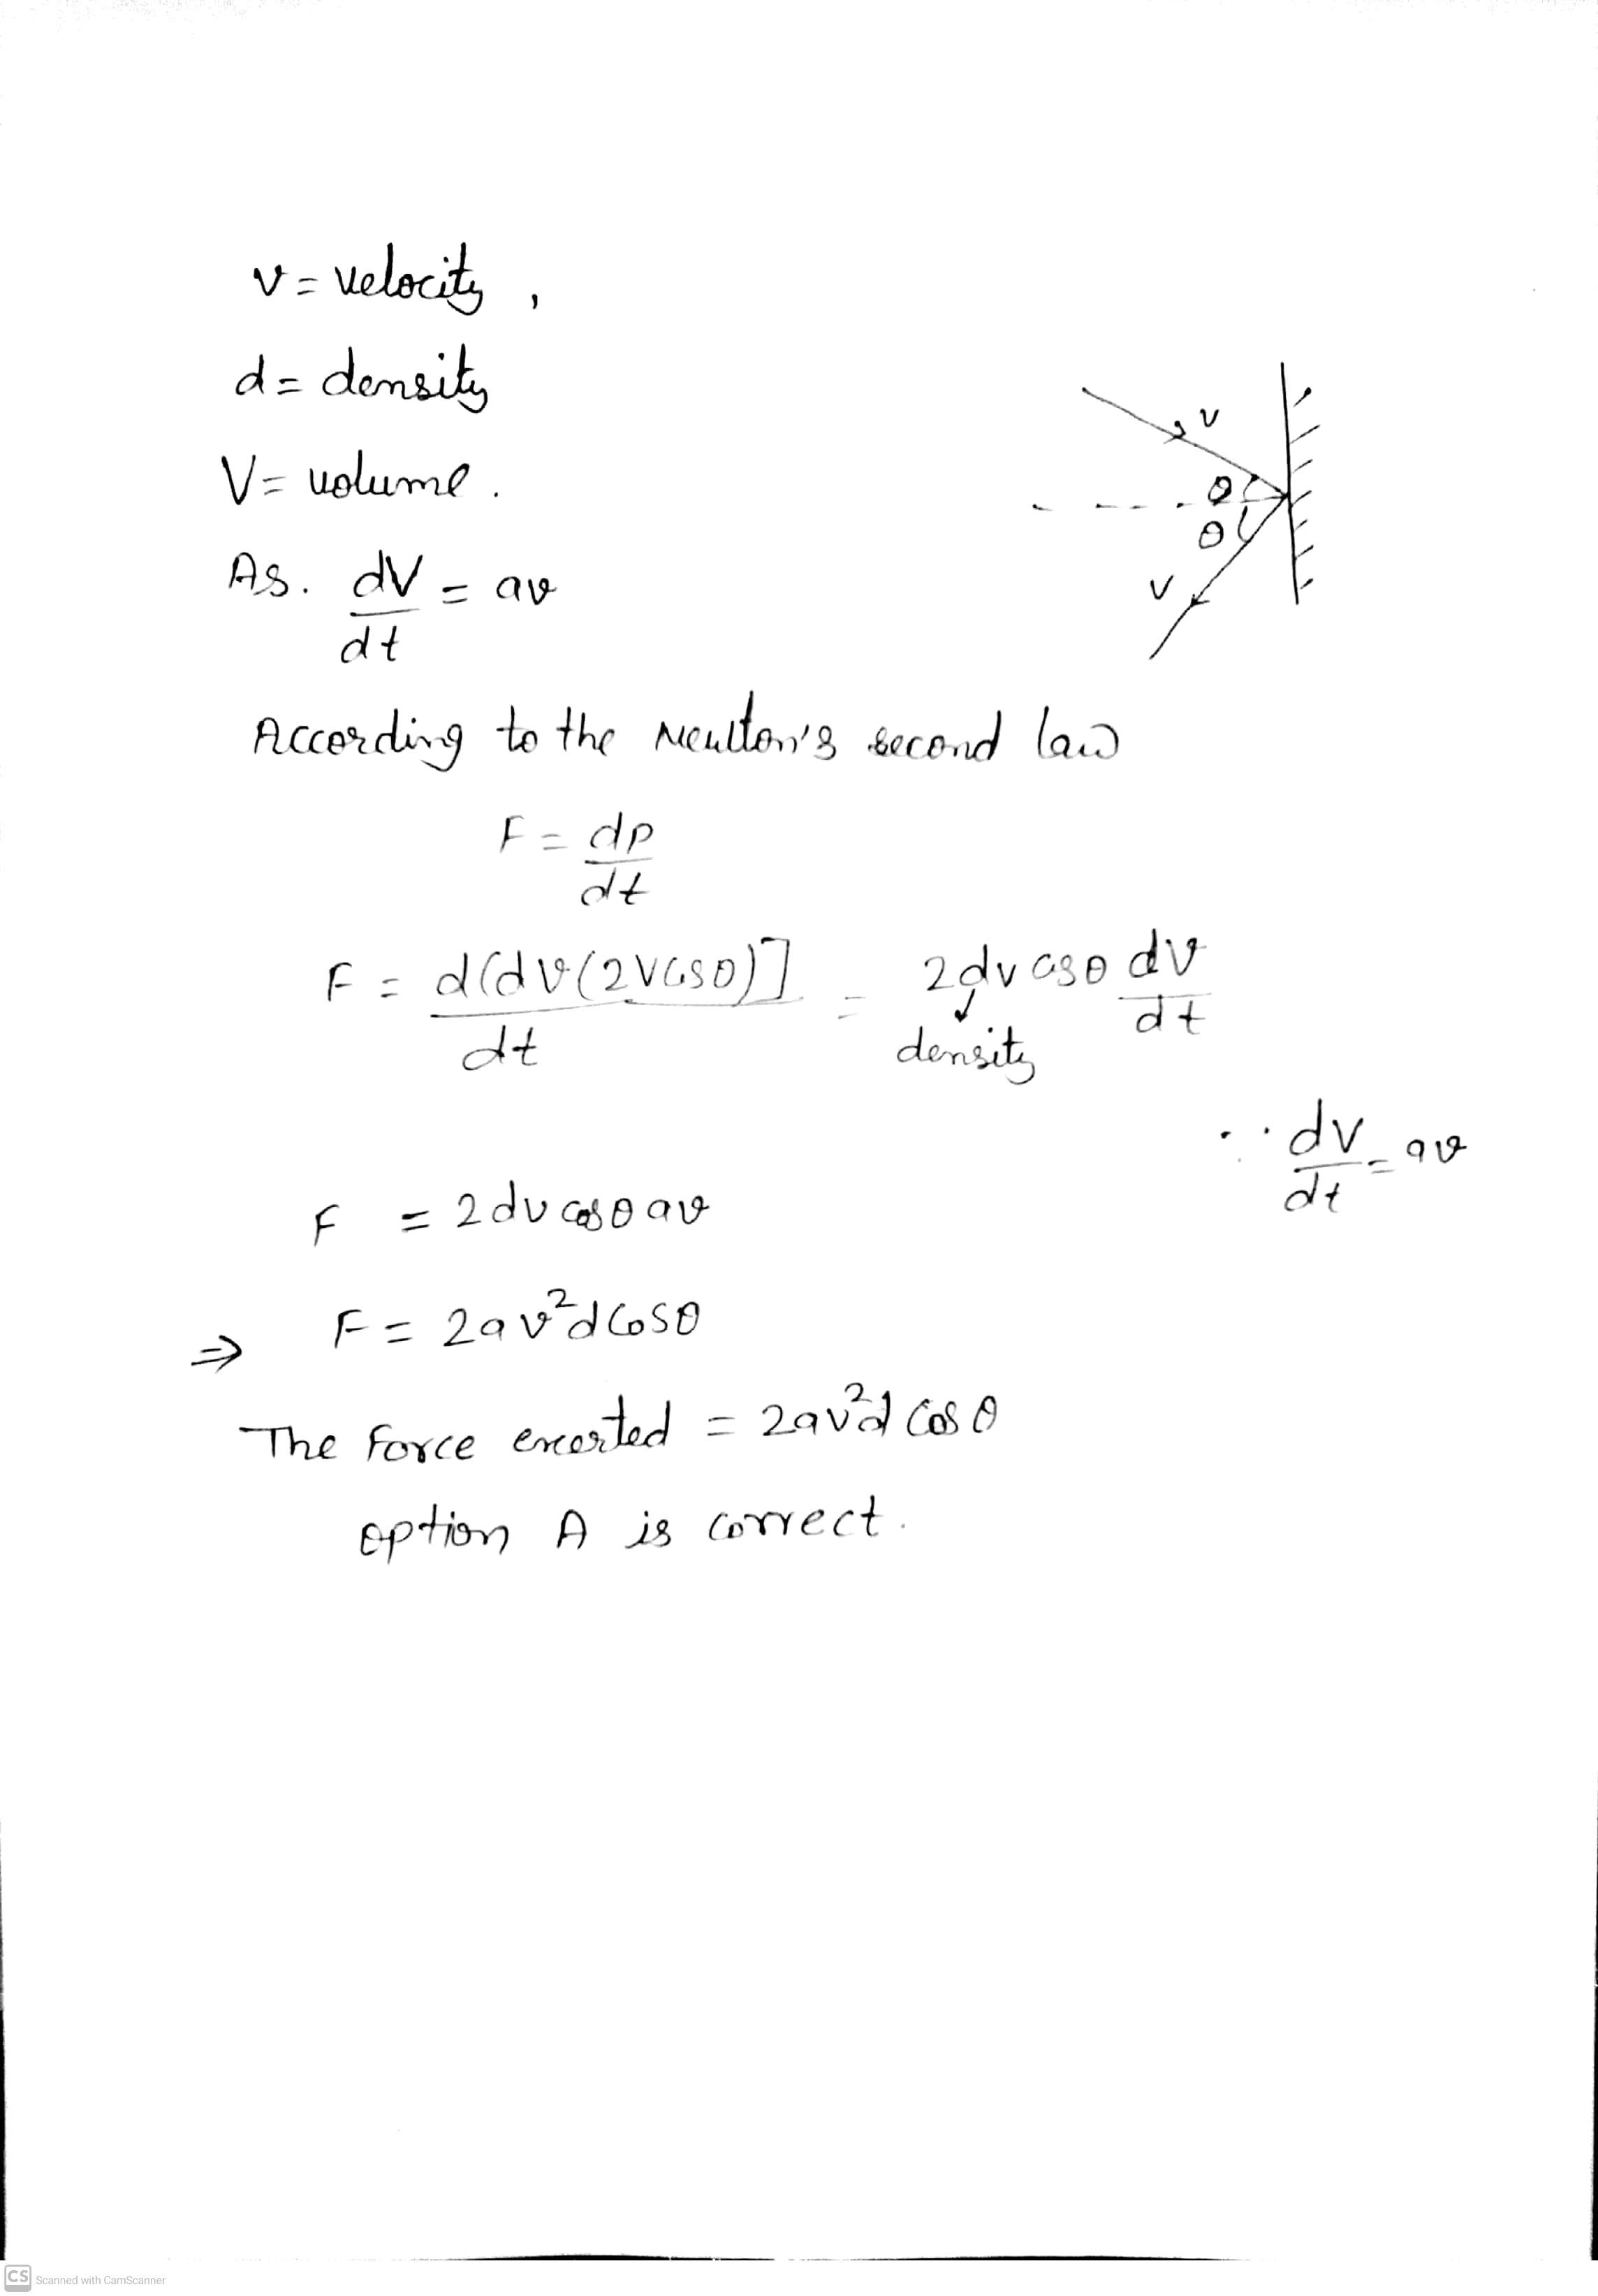 v = velocity ,
d = density
V = volume .
As. dV/dt = av
v
θ
θ
v
According to the Newton's second law
F = dp/dt
F = d[dv(2vcosθ)]/dt = 2dv cosθ dv/dt
density
∵ dV/dt = av
F = 2dv cosθ av
⇒ F = 2av²d cosθ
The Force exerted = 2av²d cos θ
option A is correct.
CS Scanned with CamScanner